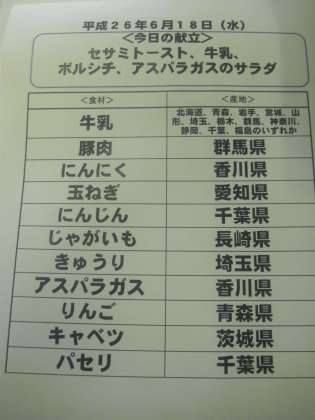 平成26年6月18日（水）
＜今日の献立＞
セサミトースト、牛乳、
ボルシチ、アスパラガスのサラダ
＜食材＞ ＜産地＞
牛乳 北海道、青森、岩手、宮城、山
形、埼玉、栃木、群馬、神奈川、
静岡、千葉、福島のいずれか
豚肉 群馬県
にんにく 香川県
玉ねぎ 愛知県
にんじん 千葉県
じゃがいも 長崎県
きゅうり 埼玉県
アスパラガス 香川県
りんご 青森県
キャベツ 茨城県
パセリ 千葉県